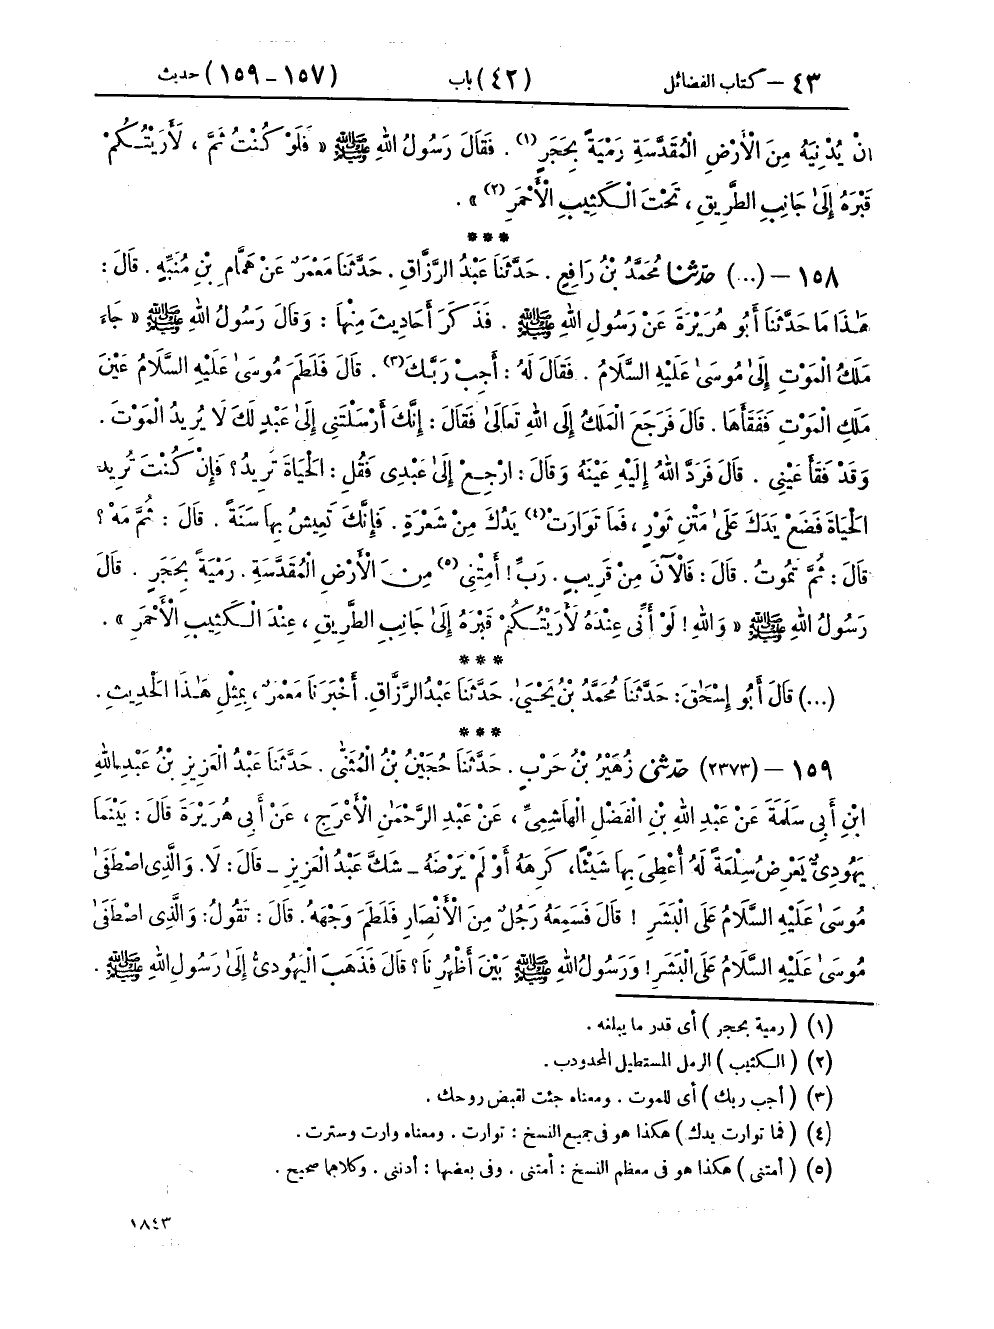 ٤٣ – كتاب الفضائل (٤٢) باب (١٥٧ – ١٥٩) حديث
انْ يُدْنِيَهُ مِنَ الْأَرْضِ الْمُقَدَّسَةِ رَمْيَةً بِحَجَرٍ(١) . فَقَالَ رَسُولُ اللهِ ﷺ « فَلَوْ كُنْتُ ثَمَّ ، لَأَرَيْتُكُمْ
قَبْرَهُ إِلَىٰ جَانِبِ الطَّرِيقِ ، تَحْتَ الْكَثِيبِ الْأَحْمَرِ(٢) » .
***
١٥٨ – (...) حَدَّثَنَا مُحَمَّدُ بْنُ رَافِعٍ . حَدَّثَنَا عَبْدُ الرَّزَّاقِ . حَدَّثَنَا مَعْمَرٌ عَنْ هَمَّامِ بْنِ مُنَبِّهٍ . قَالَ :
هَٰذَا مَا حَدَّثَنَا أَبُو هُرَيْرَةَ عَنْ رَسُولِ اللهِ ﷺ . فَذَكَرَ أَحَادِيثَ مِنْهَا : وَقَالَ رَسُولُ اللهِ ﷺ « جَاءَ
مَلَكُ الْمَوْتِ إِلَىٰ مُوسَىٰ عَلَيْهِ السَّلَامُ . فَقَالَ لَهُ : أَجِبْ رَبَّكَ(٣) . قَالَ فَلَطَمَ مُوسَىٰ عَلَيْهِ السَّلَامُ عَيْنَ
مَلَكِ الْمَوْتِ فَفَقَأَهَا . قَالَ فَرَجَعَ الْمَلَكُ إِلَى اللهِ تَعَالَىٰ فَقَالَ : إِنَّكَ أَرْسَلْتَنِي إِلَىٰ عَبْدٍ لَكَ لَا يُرِيدُ الْمَوْتَ .
وَقَدْ فَقَأَ عَيْنِي . قَالَ فَرَدَّ اللهُ إِلَيْهِ عَيْنَهُ وَقَالَ : ارْجِعْ إِلَىٰ عَبْدِى فَقُلِ : الْحَيَاةَ تُرِيدُ ؟ فَإِنْ كُنْتَ تُرِيدُ
الْحَيَاةَ فَضَعْ يَدَكَ عَلَىٰ مَتْنِ ثَوْرٍ ، فَمَا تَوَارَتْ(٤) يَدُكَ مِنْ شَعْرَةٍ . فَإِنَّكَ تَعِيشُ بِهَا سَنَةً . قَالَ : ثُمَّ مَهْ ؟
قَالَ : ثُمَّ تَمُوتُ . قَالَ : فَالْآنَ مِنْ قَرِيبٍ . رَبِّ ! أَمِتْنِى(٥) مِنَ الْأَرْضِ الْمُقَدَّسَةِ . رَمْيَةً بِحَجَرٍ . قَالَ
رَسُولُ اللهِ ﷺ « وَاللهِ ! لَوْ أَنِّى عِنْدَهُ لَأَرَيْتُكُمْ قَبْرَهُ إِلَىٰ جَانِبِ الطَّرِيقِ ، عِنْدَ الْكَثِيبِ الْأَحْمَرِ » .
***
(...) قَالَ أَبُو إِسْحَٰقَ : حَدَّثَنَا مُحَمَّدُ بْنُ يَحْيَىٰ . حَدَّثَنَا عَبْدُ الرَّزَّاقِ . أَخْبَرَنَا مَعْمَرٌ ، بِمِثْلِ هَٰذَا الْحَدِيثِ .
***
١٥٩ – (٢٣٧٣) حَدَّثَنِى زُهَيْرُ بْنُ حَرْبٍ . حَدَّثَنَا حُجَيْنُ بْنُ الْمُثَنَّىٰ . حَدَّثَنَا عَبْدُ الْعَزِيزِ بْنُ عَبْدِ اللهِ
ابْنِ أَبِى سَلَمَةَ عَنْ عَبْدِ اللهِ بْنِ الْفَضْلِ الْهَاشِمِىِّ ، عَنْ عَبْدِ الرَّحْمَٰنِ الْأَعْرَجِ ، عَنْ أَبِى هُرَيْرَةَ قَالَ : بَيْنَمَا
يَهُودِىٌّ يَعْرِضُ سِلْعَةً لَهُ أُعْطِىَ بِهَا شَيْئًا، كَرِهَهُ أَوْ لَمْ يَرْضَهُ – شَكَّ عَبْدُ الْعَزِيزِ – قَالَ : لَا. وَالَّذِى اصْطَفَىٰ
مُوسَىٰ عَلَيْهِ السَّلَامُ عَلَى الْبَشَرِ ! قَالَ فَسَمِعَهُ رَجُلٌ مِنَ الْأَنْصَارِ فَلَطَمَ وَجْهَهُ. قَالَ : تَقُولُ : وَالَّذِى اصْطَفَىٰ
مُوسَىٰ عَلَيْهِ السَّلَامُ عَلَى الْبَشَرِ ! وَرَسُولُ اللهِ ﷺ بَيْنَ أَظْهُرِنَا ؟ قَالَ فَذَهَبَ الْيَهُودِىُّ إِلَىٰ رَسُولِ اللهِ ﷺ .
(١) ( رمية بحجر ) أى قدر ما يبلغه .
(٢) ( الكثيب ) الرمل المستطيل المحدودب .
(٣) ( أجب ربك ) أى للموت . ومعناه جئت لقبض روحك .
(٤) ( فما توارت يدك ) هكذا هو فى جميع النسخ : توارت . ومعناه وارت وسترت .
(٥) ( أمتنى ) هكذا هو فى معظم النسخ : أمتنى . وفى بعضها : أدننى . وكلاهما صحيح .
١٨٤٣